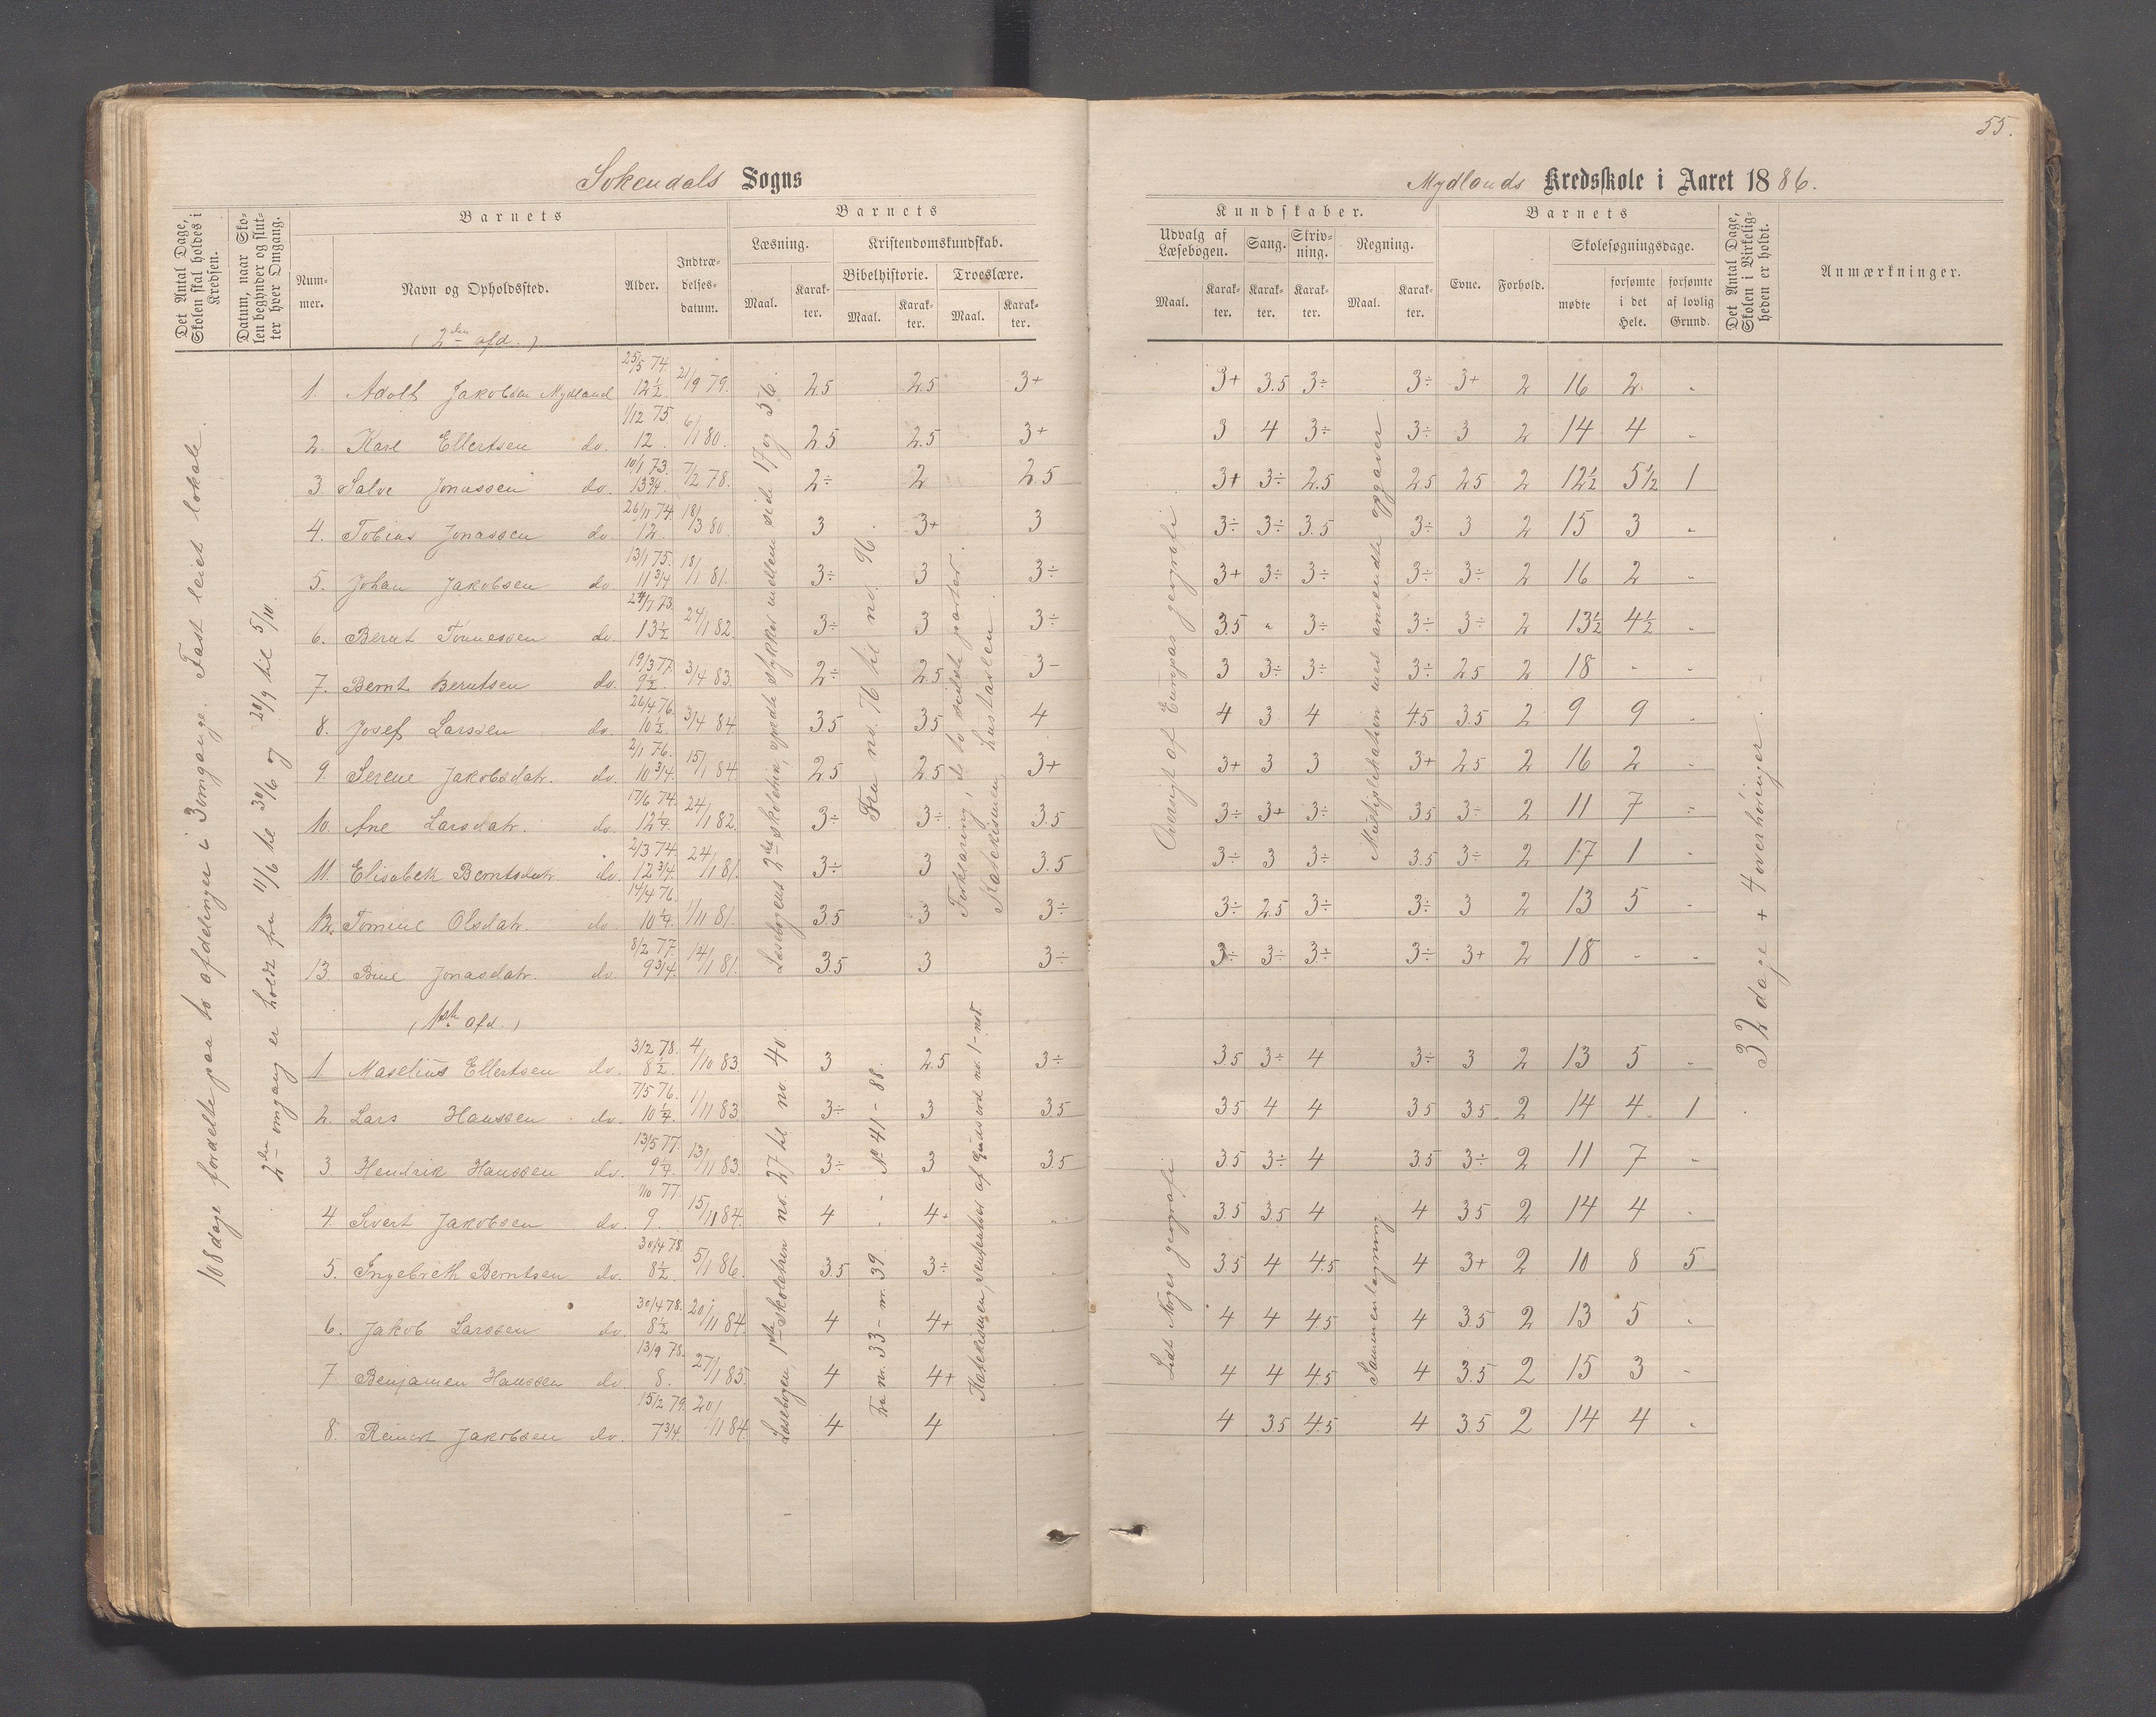 55.
Sokendals Sogns
Mydlands Kredsskole i Aaret 1886.
Det Antal Dage, Skolen skal holdes i Kredsen.
Datum, naar Skolen begynder og slutter hver Omgang.
Barnets
Nummer.
Navn og Opholdssted.
Alder.
Indtrædelsesdatum.
Barnets
Læsning.
Maal.
Karakter.
Kristendomskundskab.
Bibelhistorie.
Maal.
Karakter.
Troeslære.
Maal.
Karakter.
Kundskaber.
Udvalg af Læsebogen.
Maal.
Karakter.
Sang.
Karakter.
Skrivning.
Karakter.
Regning.
Maal.
Karakter.
Barnets
Evne.
Forhold.
Skolesøgningsdage.
mødte
forsømte i det Hele.
forsømte af lovlig Grund.
Det Antal Dage, Skolen i Virkeligheden er holdt.
Anmærkninger.
108 dage fordelte paa to afdelinger i 3 omgange. Fast leiet lokale.
2den omgang er holdt fra 11/6 til 30/6 og 20/9 til 5/10.
(2den afd.)
1. Adolf Jakobsen Mydland 25/5 74. 12½. 21/9 79. 2.5 2.5 3+ 3+ 3.5 3÷ 3÷ 3+ 2 16 2 "
2. Karl Ellertsen do. 1/12 75 12. 6/1 80. 2.5 2.5 3+ 3 4 3÷ 3÷ 3 2 14 4 "
3. Salve Jonassen do. 10/1 73. 13¾. 7/2 78. 2÷ 2 2.5 3+ 3÷ 2.5 2.5 2.5 2 12½ 5½ 1
4. Tobias Jonassen do. 26/11 74. 12. 18/3 80. 3 3+ 3 3÷ 3÷ 3.5 3÷ 3 2 15 3 "
5. Johan Jakobsen do. 13/1 75. 11¾ 18/1 81. 3÷ 3 3÷ 3+ 3÷ 3÷ 3÷ 3÷ 2 16 2 "
6. Bernt Tønnessen do. 13½ 24/1 82. 3÷ 3 3÷ 3.5 " 3÷ 3÷ 3÷ 2 13½ 4½ "
7. Bernt Berntsen do. 19/3 77. 9½. 3/4 83. 2÷ 2.5 3- 3 3÷ 3÷ 3÷ 2.5 2 18 - -
8. Josef Larssen do. 26/4 76. 10½. 3/4 84. 3.5 3.5 4 4 3 4 4.5 3.5 2 9 9 "
9. Serene Jakobsdatr. do. 2/1 76. 10¾. 15/1 84. 2.5 2.5 3+ 3+ 3 3 3+ 2.5 2 16 2 -
10. Ane Larsdatr. do. 17/6 74. 12¼. 24/1 82. 3÷ 3÷ 3.5 3÷ 3+ 3÷ 3.5 3÷ 2 11 7 -
11. Elisabeth Berntsdatr. do. 2/3 74. 12¾. 24/1 81. 3÷ 3 3.5 3÷ 3 3÷ 3.5 3÷ 2 17 1 -
12. Tomine Olsdatr. do. 14/4 76. 10¼. 1/11 81. 3.5 3 3÷ 3÷ 2.5 3÷ 3÷ 3 2 13 5 -
13. Bine Jonasdatr. do. 8/2 77. 9¾. 14/1 81. 3.5 3 3÷ 3÷ 3÷ 3÷ 3÷ 3+ 2 18 - -
Læsebogens 2det skoletrin, spredte stykker mellem side 17 og 56.
Fra no. 76 til no. 96.
Forklaring, de to sidste parter.
Katekismen, hustavlen.
Oversigt af Europas geografi
Multiplikation med anvendte opgaver
32 dage + 4 overhøringer.
(1ste afd.)
1. Maselius Ellertsen do. 3/2 78. 8½. 4/10 83. 3 2.5 3÷ 3.5 3÷ 4 3÷ 3 2 13 5 -
2. Lars Hanssen do. 7/5 76. 10¼. 1/11 83. 3÷ 3 3.5 3.5 4 4 3.5 3.5 2 14 4 1
3. Hendrik Hanssen do. 13/5 77. 9¼. 13/11 83. 3÷ 3 3.5 3.5 3÷ 4 3.5 3÷ 2 11 7 -
4. Sivert Jakobsen do. 1/10 77. 9. 15/11 84. 4 4. " 3.5 3.5 4 4 3.5 2 14 4 -
5. Ingebreth Berntsen do. 30/4 78. 8½. 5/1 86. 3.5 3÷ . 3.5 4 4.5 4 3+ 2 10 8 5
6. Jakob Larssen do. 30/4 78. 8½ 20/11 84. 4 4+ . 4 4 4.5 4 3.5 2 13 5 .
7. Benjamen Hanssen do. 13/9 78. 8. 27/1 85. 4 4+ . 4 4 4.5 4 3.5 2 15 3 -
8. Reinert Jakobsen do. 15/2 79. 7¾. 20/11 84. 4 4 . 4 3.5 4.5 4 3.5 2 14 4 "
Læsebogen, 1ste skoletrin no. 27 til no. 40.
No 41 - 88.
Fra nr. 33 - nr. 39.
Katekismen, sentenser af Guds ord no. 1 -
Lidt Norges geografi
Sammenlægning